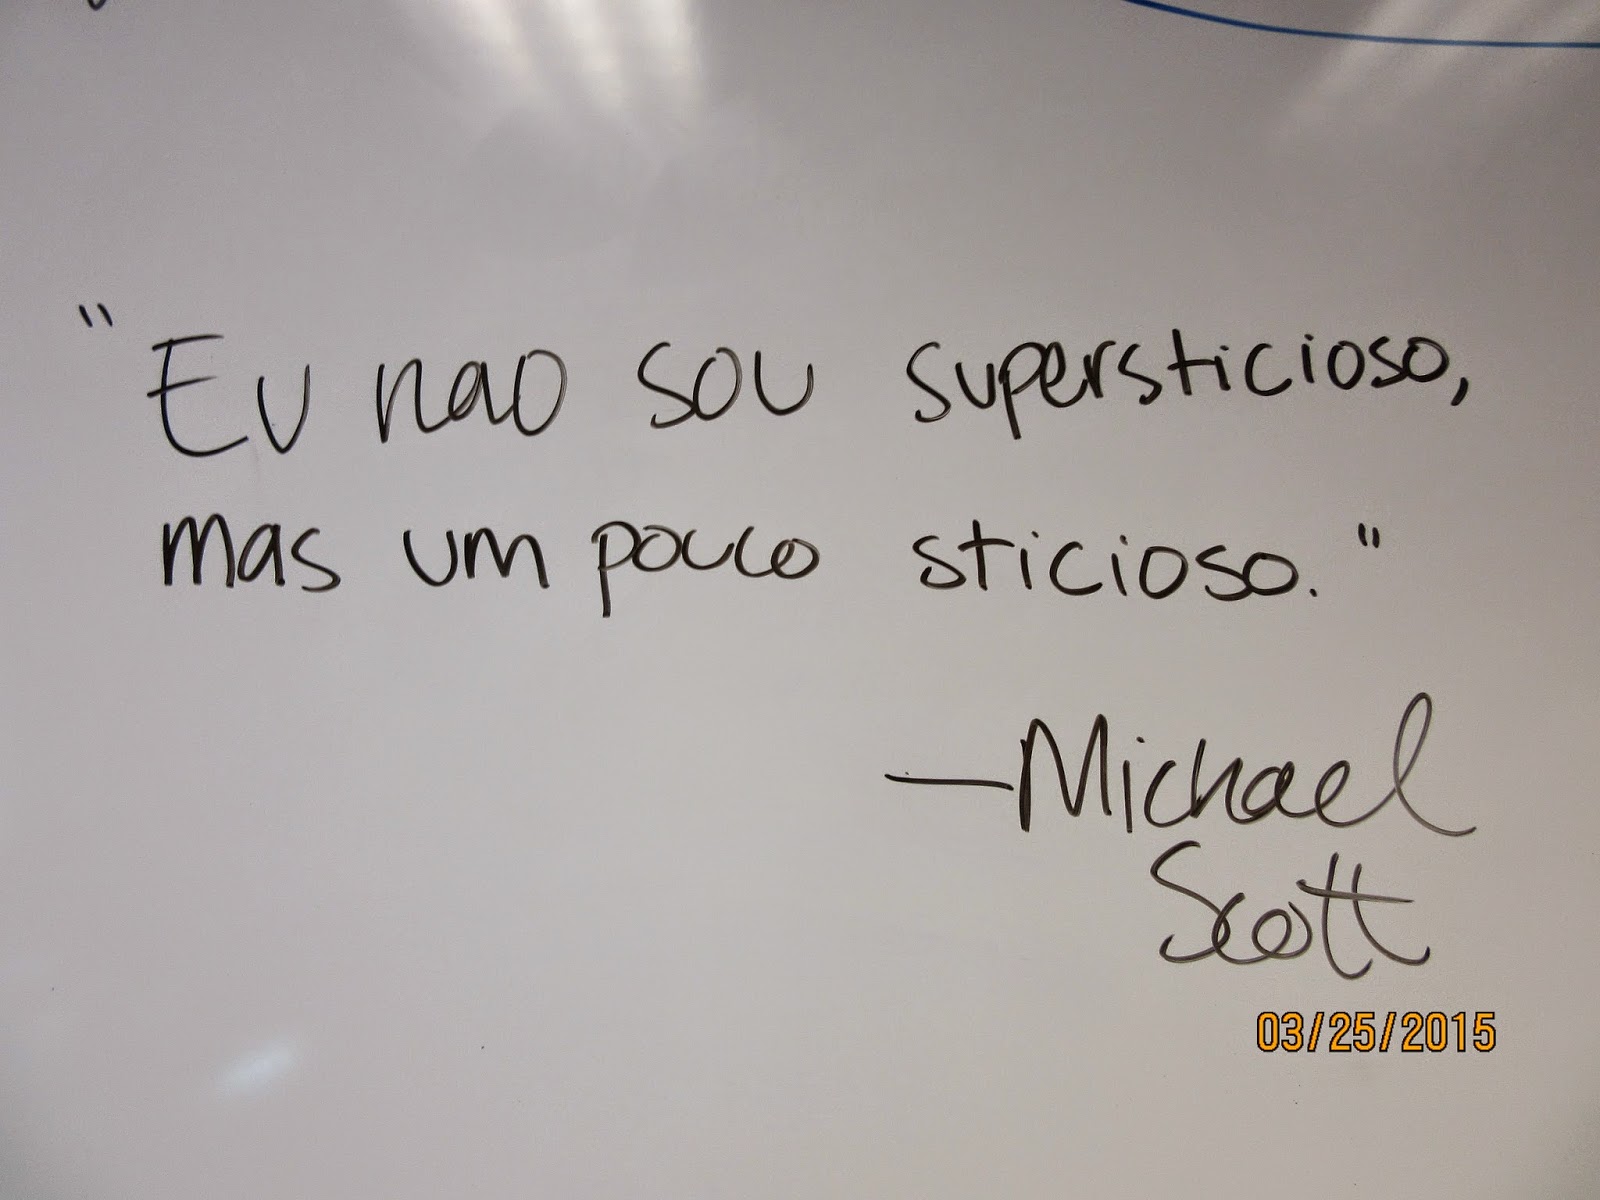 "Eu nao sou supersticioso,
mas um pouco sticioso."
—Michael
Scott
03/25/2015